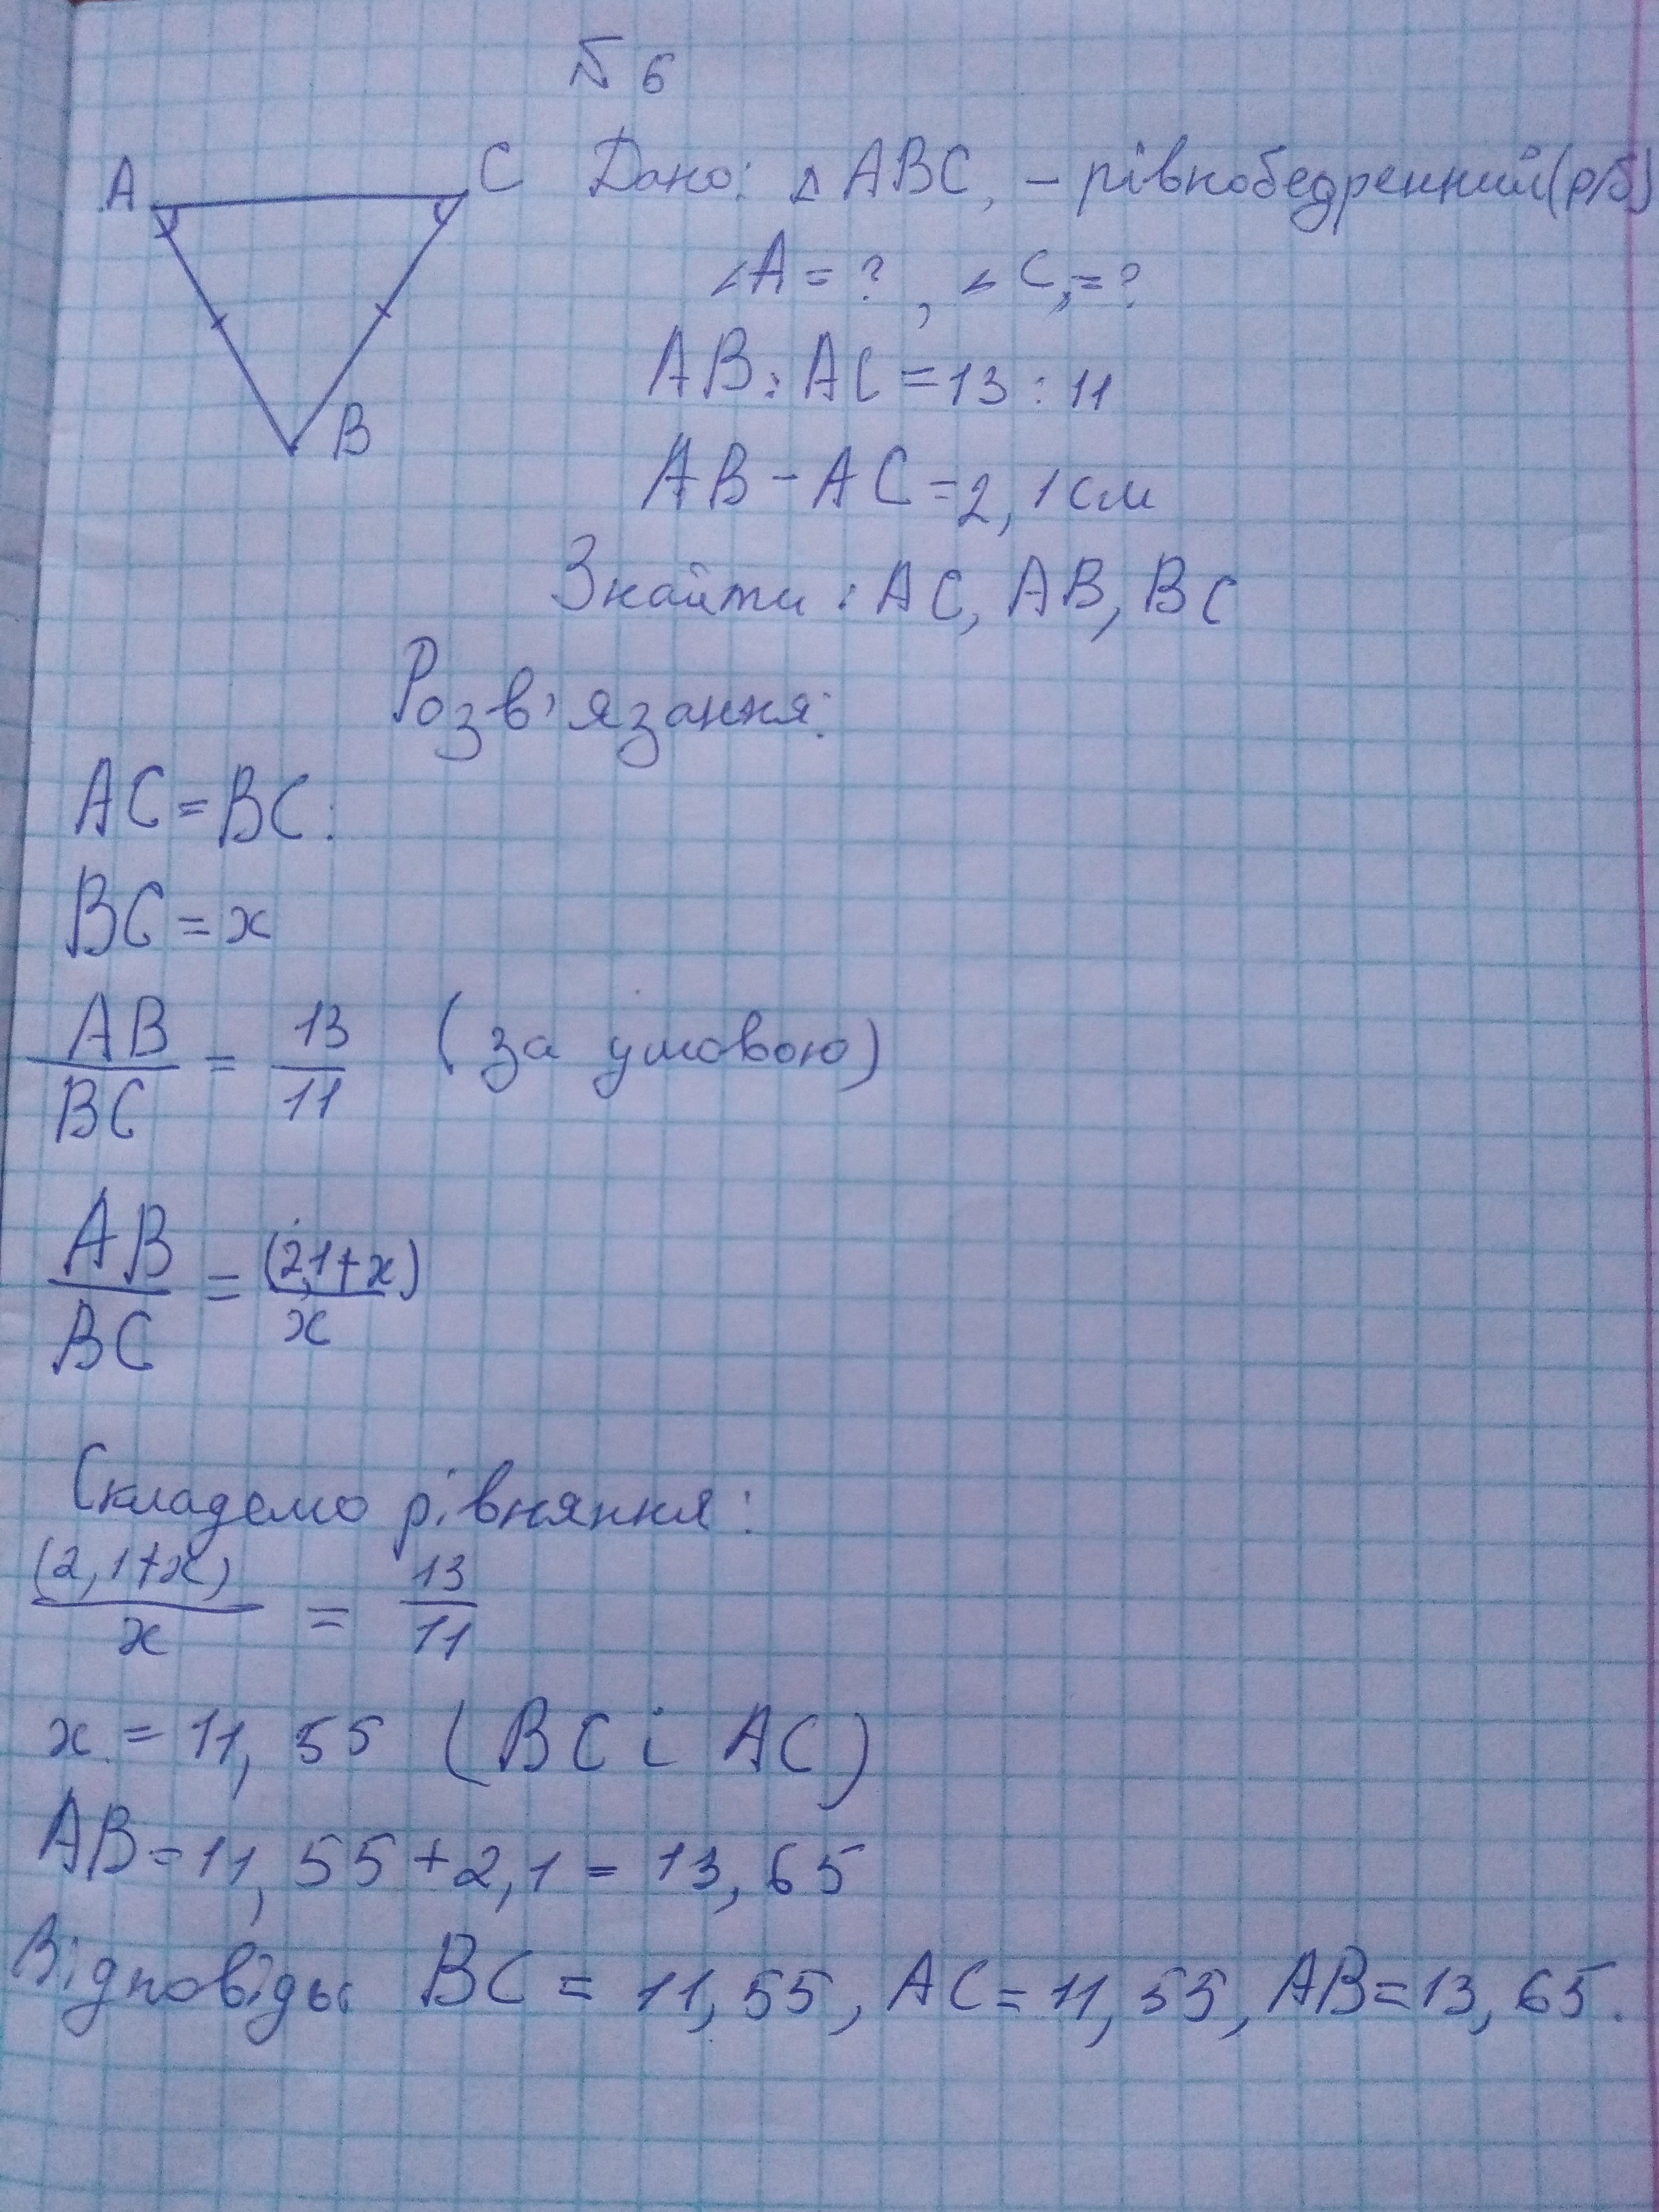 № 6
A C Дано: △ABC, – рівнобедренний(р/б)
∠A = ?, ∠C, = ?
AB : AC = 13 : 11
B
AB - AC = 2,1 см
Знайти : AC, AB, BC
Розв'язання:
AC = BC.
BC = x
AB/BC = 13/11 (за умовою)
AB/BC = (2,1+x)/x
Складемо рівняння:
(2,1+x)/x = 13/11
x = 11,55 (BC і AC)
AB = 11,55 + 2,1 = 13,65
Відповідь: BC = 11,55, AC = 11,55, AB = 13,65.